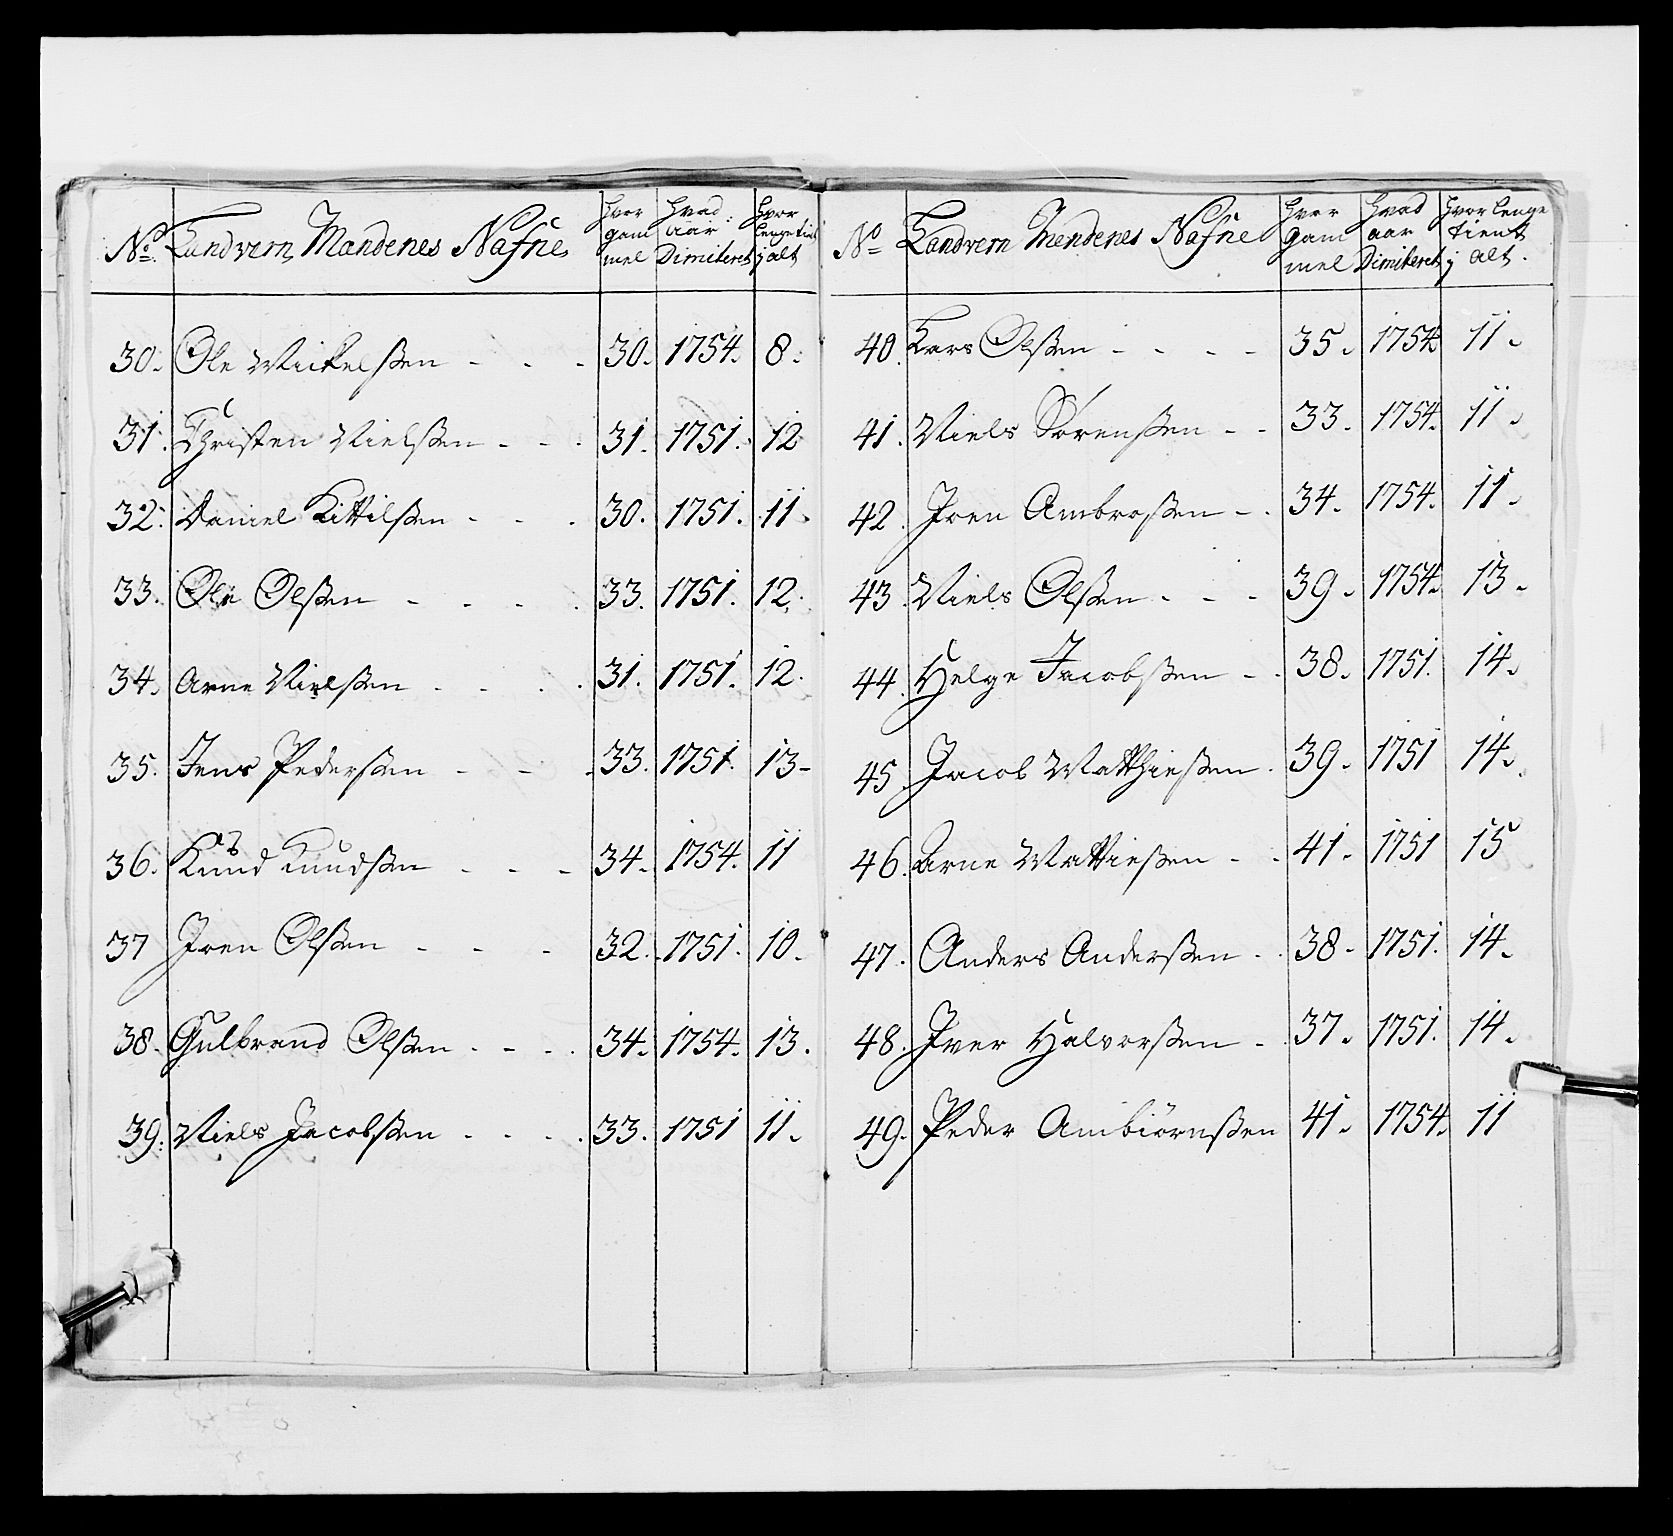 No. Landvern Mandenes Nafne hvor gam mel hvad aar Dimiteret hvor lenge tient j alt
30. Ole Mickelsßen - - - 30. 1754. 8.
31. Christen Nielsßen - - - 31. 1751. 12
32. Daniel Kittilsßen - - - 30. 1751. 11.
33. Ole Olsßen - - - - 33. 1751. 12.
34. Arne Nielsßen - - - - 31. 1751. 12.
35. Jens Pedersßen - - - 33. 1751. 13-
36. Knud Knudsßen - - - 34. 1754. 11
37 Joen Olsßen - - - 32. 1751. 10.
38. Gulbrand Olsßen - - - - 34. 1754. 13.
39. Niels Jacobsßen - - - - 33. 1751 11.
No Landvern Mendenes Nafne hvor gam mel hvad aar Dimiteret hvor lenge tient j alt.
40. Lars Olsßen - - - - 35. 1754. 11.
41. Niels Sørensßen - - 33. 1754. 11.
42. Joen Ambrosßen - - 34. 1754. 11.
43. Niels Olsßen - - - 39. 1754. 13.
44. Helge Jacobsßen - - 38. 1751. 14.
45 Jacob Matthiesßen - 39. 1751 14.
46. Arne Mattiesßen - - 41. 1751 15
47. Anders Andersßen - - 38- 1751. 14.
48. Iver Halvorsßen - - 37. 1751. 14.
49. Peder Ambiörnsßen 41. 1754. 11